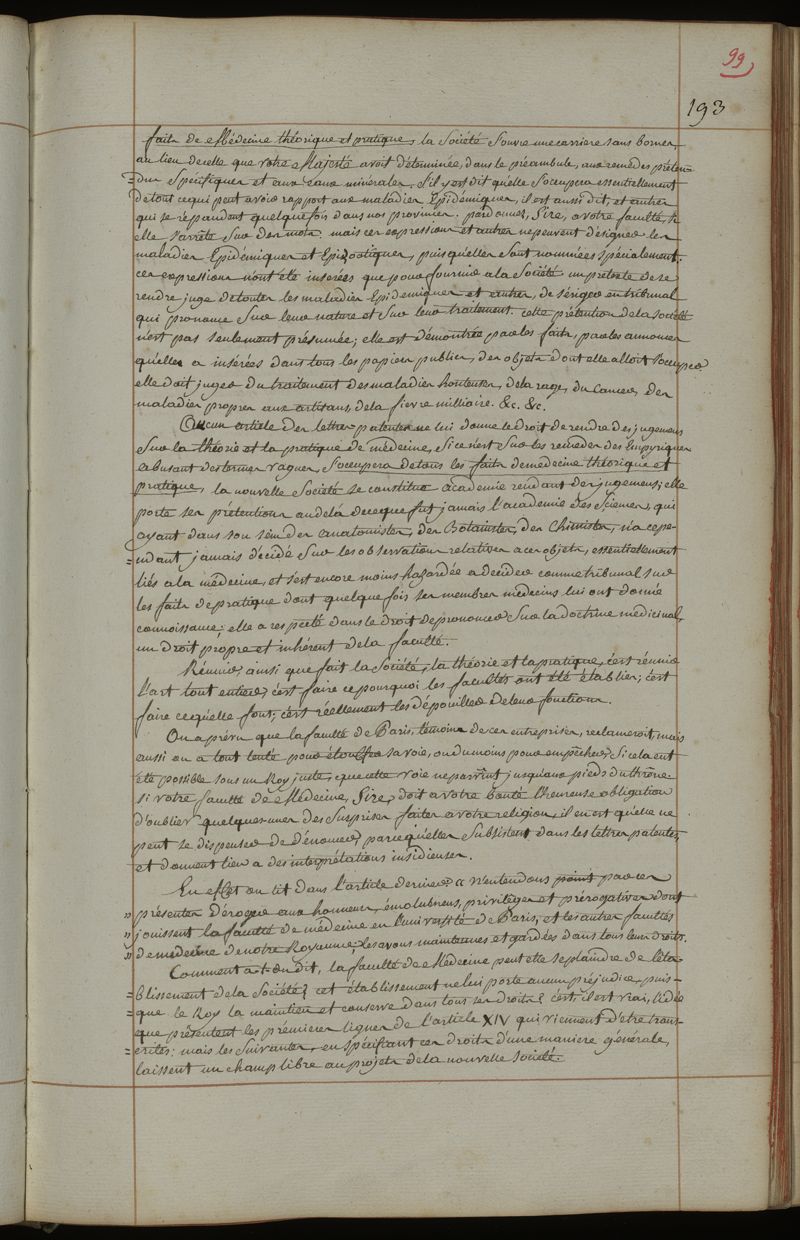 99
193
faits de Médecine théorique et pratique, la Société s'ouvre une carriere sans bornes,
au lieu de celle que votre Majesté avoit déterminée, dans le préambule, aux remedes préten-
= dus spécifiques et aux eaux minérales. S'il y est dit qu'elle s'occupera essentiellement
de tout ce qui peut avoir rapport aux maladies Epidémiques, il est aussi dit, et autres
qui se répandent quelquefois dans nos provinces. pardonnez, Sire, a votre faculté si
elle s'arrête sur des mots. mais ces expressions et autres ne peuvent désigner les
maladies Epidémiques et Epizootiques, puisqu'elles sont nommées spécialement.
ces expressions n'ont été inserées que pour fournir a la Société un prétexte de se
rendre juge de toutes les maladies Epidemiques et autres, de s'ériger en tribunal
qui prononce sur leur nature et sur leur traitement. cette prétention de la société
n'est pas seulement présumée; elle est démontrée par les faits, par les annonces
qu'elle a insérées dans tous les papiers publics, des objets dont elle alloit s'occuper
elle doit juger du traitement des maladies honteuses, de la rage, du Cancer, des
maladies propres aux artisans, de la fievre milliaire. &c. &c.
Aucun article des lettres patentes ne lui donne le droit de rendre des jugemens
sur la théorie et la pratique de médecine, si ce n'est sur les remedes des Empyriques
abusant des termes vagues, s'occupera de tous les faits de médecine théorique et
pratique, la nouvelle Société se constitue académie rendant des jugemens; elle
porte ses prétentions au dela de ce que fut jamais l'académie des Sciences, qui
ayant dans son sein des anatomistes, des Botanistes, des Chimistes, n'a cepe-
= ndant jamais décidé sur les observations relatives a ces objets, essentiellement
liés a la médecine, et s'est encore moins hazardée a decider comme tribunal sur
les faits de pratique dont quelque fois ses membres médecins lui ont donné
connoissance; elle a respecté dans le droit de prononcer sur la doctrine médicinal,
un droit propre et inhérent de la faculté.
Réunir, ainsi que fait la Société, la théorie et la pratique, c'est réunir
l'art tout entier, c'est faire ce pourquoi les facultés ont été établies; c'est
faire ce qu'elle font; c'est réellement les dépouiller de leurs fonctions.
On a prévu que la faculté de Paris, témoins de ces entreprises, reclameroit, mais
aussi on a tout tenté pour étouffer sa voie, ou du moins pour empêcher, si cela eut
été possible sous un Roy juste, que cette voie ne parvînt jusqu'aux pieds du thrône
si votre faculté de Médecine, Sire, doit a votre bonté l'heureuse obligation
d'oublier quelques unes des surprises faites a votre religion, il en est qu'elle ne
peut se dispenser de dénoncer, parce qu'elles subsistent dans les lettres patentes,
et donnent lieu a des interprétations insidieuses.
En effet on lit dans l'article dernier « n'entendons point par ces
" présentes déroger aux honneurs, émolumens, privileges et prérogatives dont
" jouissent la faculté de médecine en l'université de Paris, et les autres facultés
" de medecine de notre Royaume, les avons maintenues et gardées dans tous leurs droits.
Comment a-t-on dit, la faculté de Médecine peut elle se plaindre de l'éta-
= blissement de la Société? cet établissement ne lui porte aucun préjudice, puis-
= que le Roy la maintien et conserve dans tous ses droits? c'est, il est vrai, l'idée
que présentent les premieres lignes de l'article XIV qui viennent d'etre trans-
= crites; mais les suivantes, en spécifiant ces droits d'une maniere générale,
laissent un champ libre au projets de la nouvelle société.